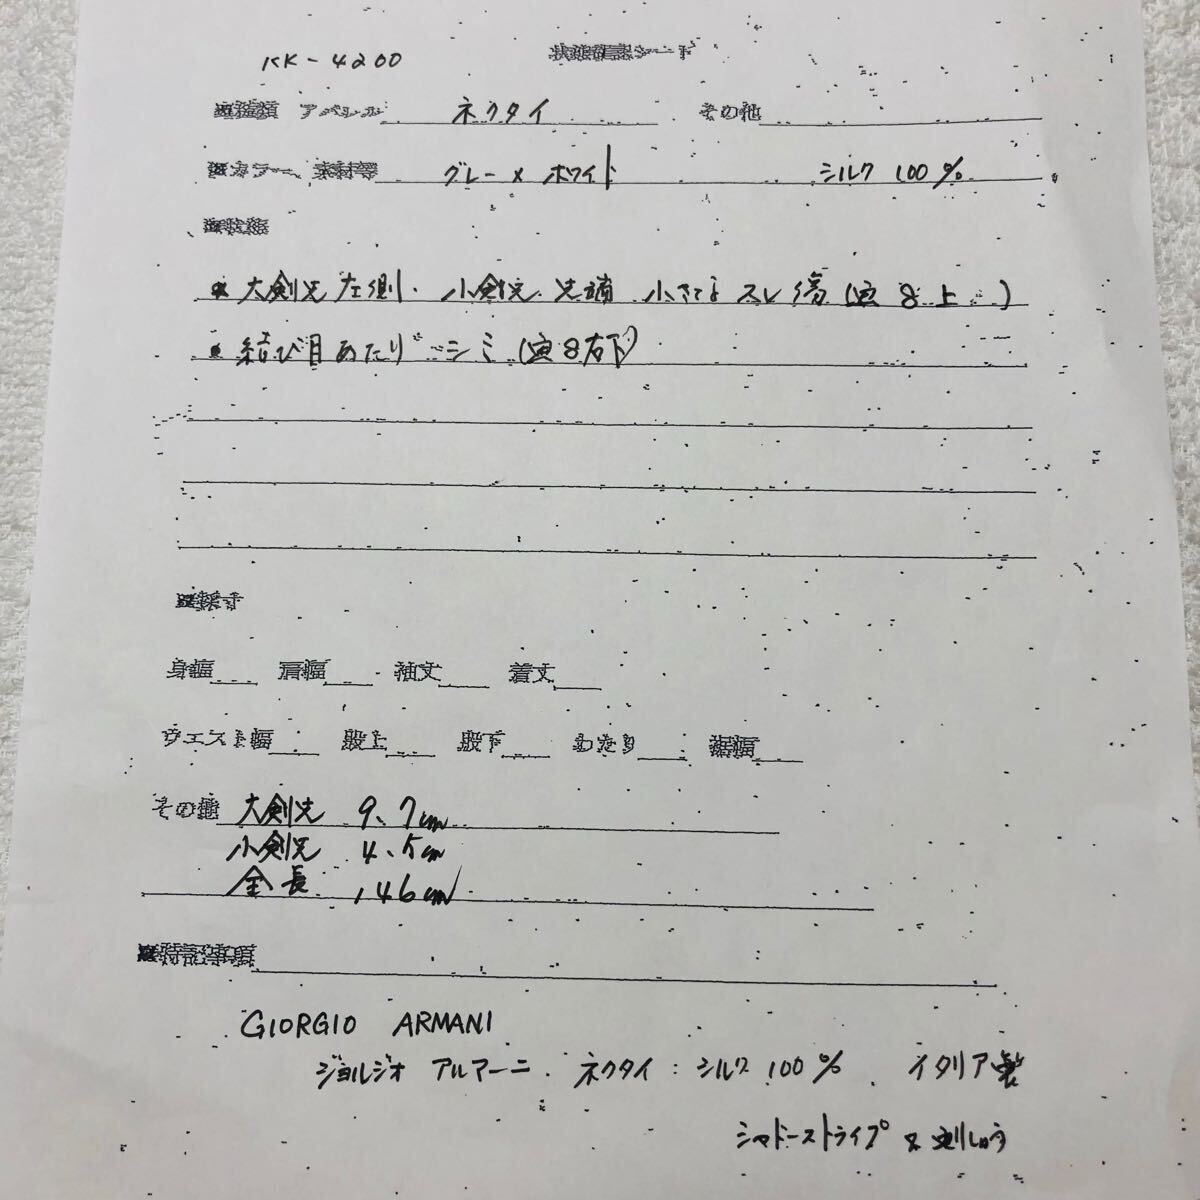 KK-4200 状態確認シート
■種類 アパレル ネクタイ その他
■カラー、素材等 グレー×ホワイト シルク 100%
■状態
・大剣先左側・小剣先 先端 小さなスレ傷(写8上)
・結び目あたり シミ(写8右下)
■採寸
身幅 肩幅 袖丈 着丈
ウエスト幅 股上 股下 わたり 裾幅
その他 大剣先 9.7cm
小剣先 4.5cm
全長 146cm
■特記事項
GIORGIO ARMANI
ジョルジオ アルマーニ・ネクタイ:シルク100%、イタリア製
シャドーストライプ×刺しゅう